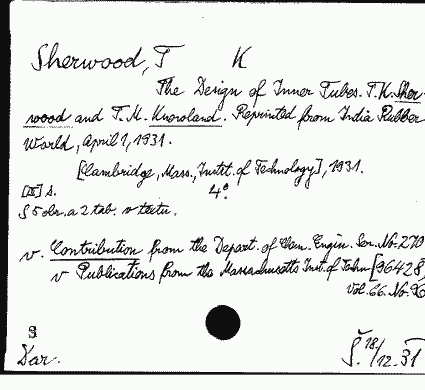 Sherwood, T K
The Design of Inner Tubes. T.K. Sher-
wood and T. K. Knowland. Reprinted from India Rubber
World, April 1, 1931.
[Cambridge, Mass., Instit. of Technology], 1931.
[II] s. 4°.
S 5 obr. a 2 tab. v textu.
v. Contribution from the Depart. of Chem. Engin. Ser. No. 270
v Publications from the Massachusetts Inst. of Techn [96428]
Vol. 66. No. 96
S
Dar. Š. 18./12.31